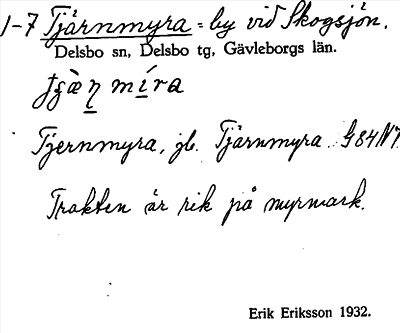 1-7 Tjärnmyra = by vid Skogsjön.
Delsbo sn, Delsbo tg, Gävleborgs län.
míra
Tjernmyra, jb. Tjärnmyra. G84N7
Trakten är rik på myrmark.
Erik Eriksson 1932.